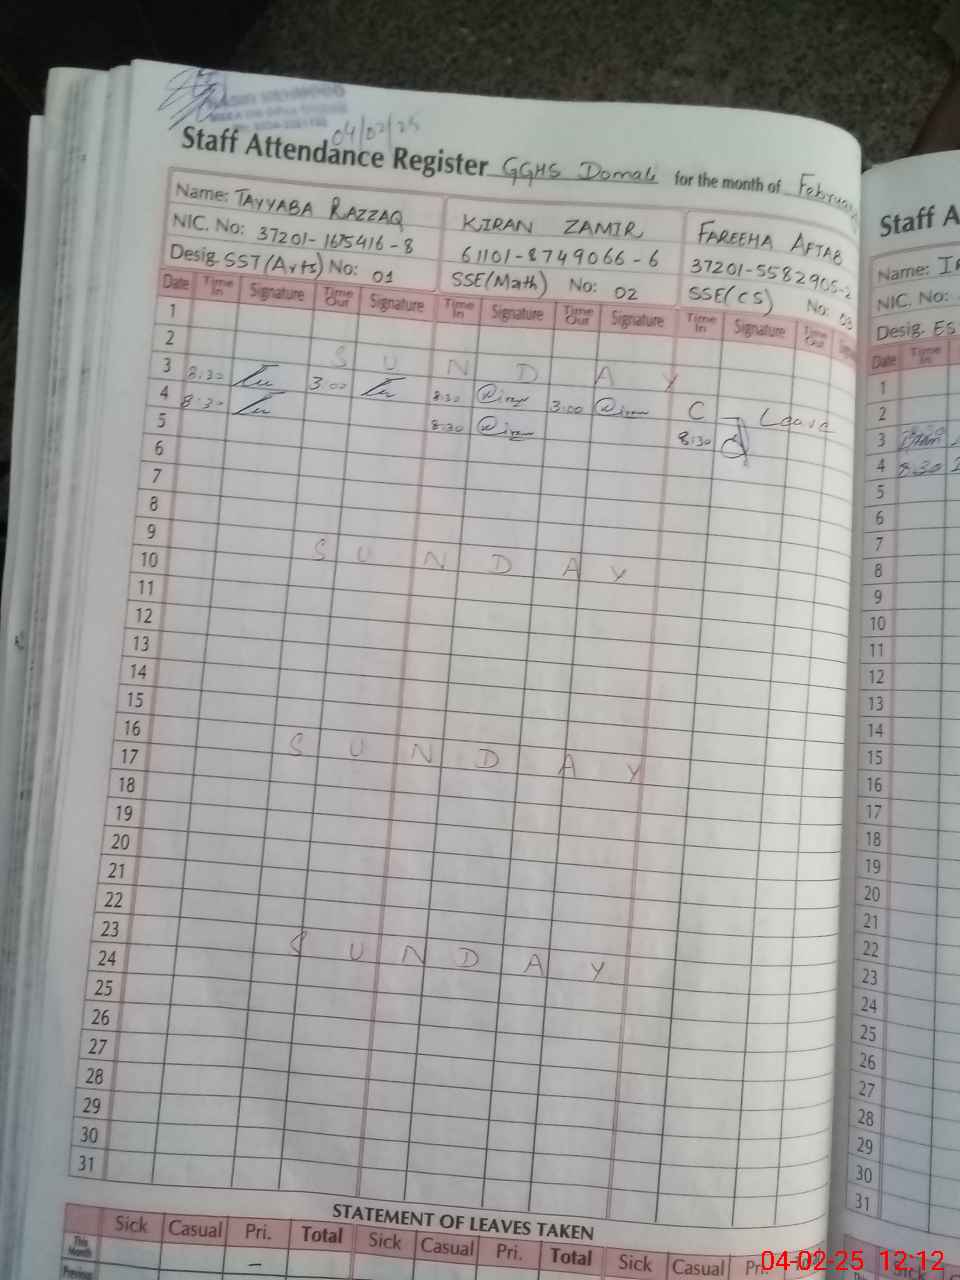 04/02/25
Staff Attendance Register GGHS Domali for the month of February
Name: TAYYABA RAZZAQ KIRAN ZAMIR FAREEHA AFTAB
NIC. No: 37201-1675416-8 61101-8749066-6 37201-5582905-2
Desig. SST(Arts) No: 01 SSE(Math) No: 02 SSE(CS) No: 03
Date Time In Signature Time Out Signature Time In Signature Time Out Signature Time In Signature Time Out
1
2 SUNDAY
3 8:30 3:00 8:30 3:00 C - Leave
4 8:30 8:30 8:30
5
6
7
8
9 SUNDAY
10
11
12
13
14
15
16 SUNDAY
17
18
19
20
21
22
23 SUNDAY
24
25
26
27
28
29
30
31
STATEMENT OF LEAVES TAKEN
Sick Casual Pri. Total Sick Casual Pri. Total Sick Casual
This Month -
Previous
Staff A
Name:
NIC. No:
Desig. ES
Date Time In
1
2
3
4 8:30
5
6
7
8
9
10
11
12
13
14
15
16
17
18
19
20
21
22
23
24
25
26
27
28
29
30
31
04-02-25 12:12